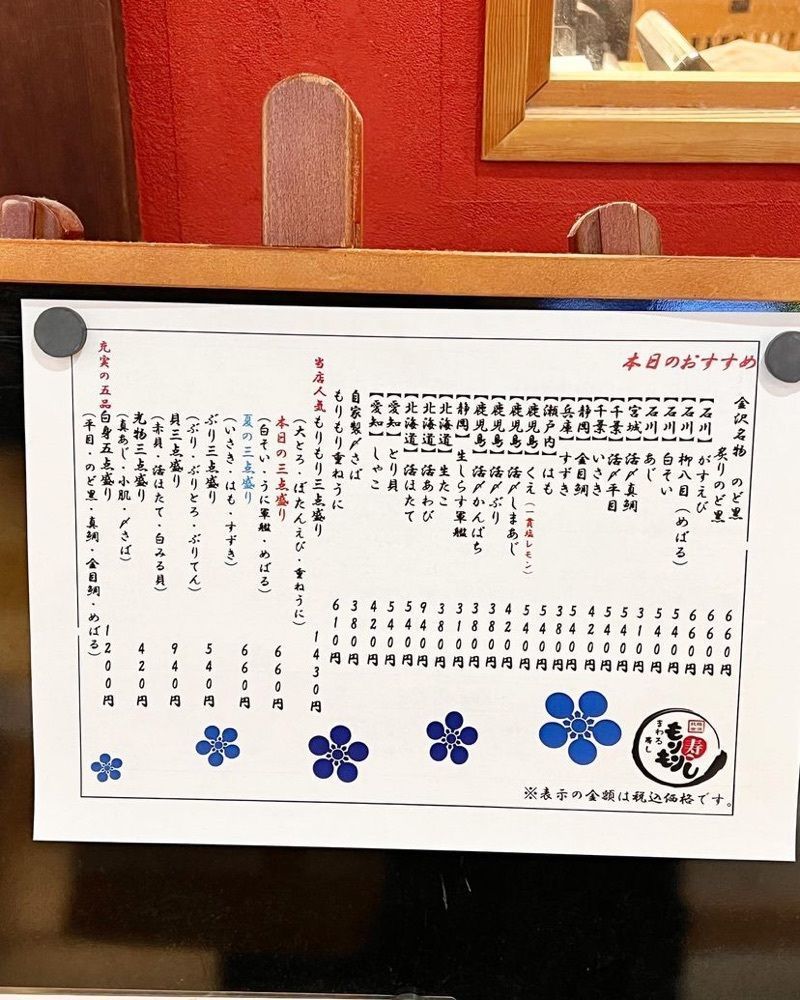 本日のおすすめ
金沢名物 のど黒 660円
炙りのど黒 660円
【石川】がすえび 660円
【石川】柳八目(めばる) 540円
【石川】白そい 540円
【石川】あじ 310円
【宮城】活〆真鯛 540円
【千葉】活〆平目 540円
【千葉】いさき 420円
【静岡】金目鯛 540円
【兵庫】すずき 380円
【瀬戸内】はも 540円
【鹿児島】くえ(一貫塩レモン) 540円
【鹿児島】活〆しまあじ 420円
【鹿児島】活〆ぶり 380円
【鹿児島】活〆かんぱち 380円
【静岡】生しらす軍艦 310円
【北海道】生たこ 380円
【北海道】活あわび 940円
【北海道】活ほたて 540円
【愛知】とり貝 540円
【愛知】しゃこ 420円
自家製〆さば 380円
もりもり重ねうに 610円
当店人気もりもり三点盛り 1430円
(大とろ・ぼたんえび・重ねうに)
本日の三点盛り 660円
(白そい・うに軍艦・めばる)
夏の三点盛り 660円
(いさき・はも・すずき)
ぶり三点盛り 540円
(ぶり・ぶりとろ・ぶりてん)
貝三点盛り 940円
(赤貝・活ほたて・白みる貝)
光物三点盛り 420円
(真あじ・小肌・〆さば)
充実の五品白身五点盛り 1200円
(平目・のど黒・真鯛・金目鯛・めばる)
まわる
寿し
もりもり
寿し
※表示の金額は税込価格です。